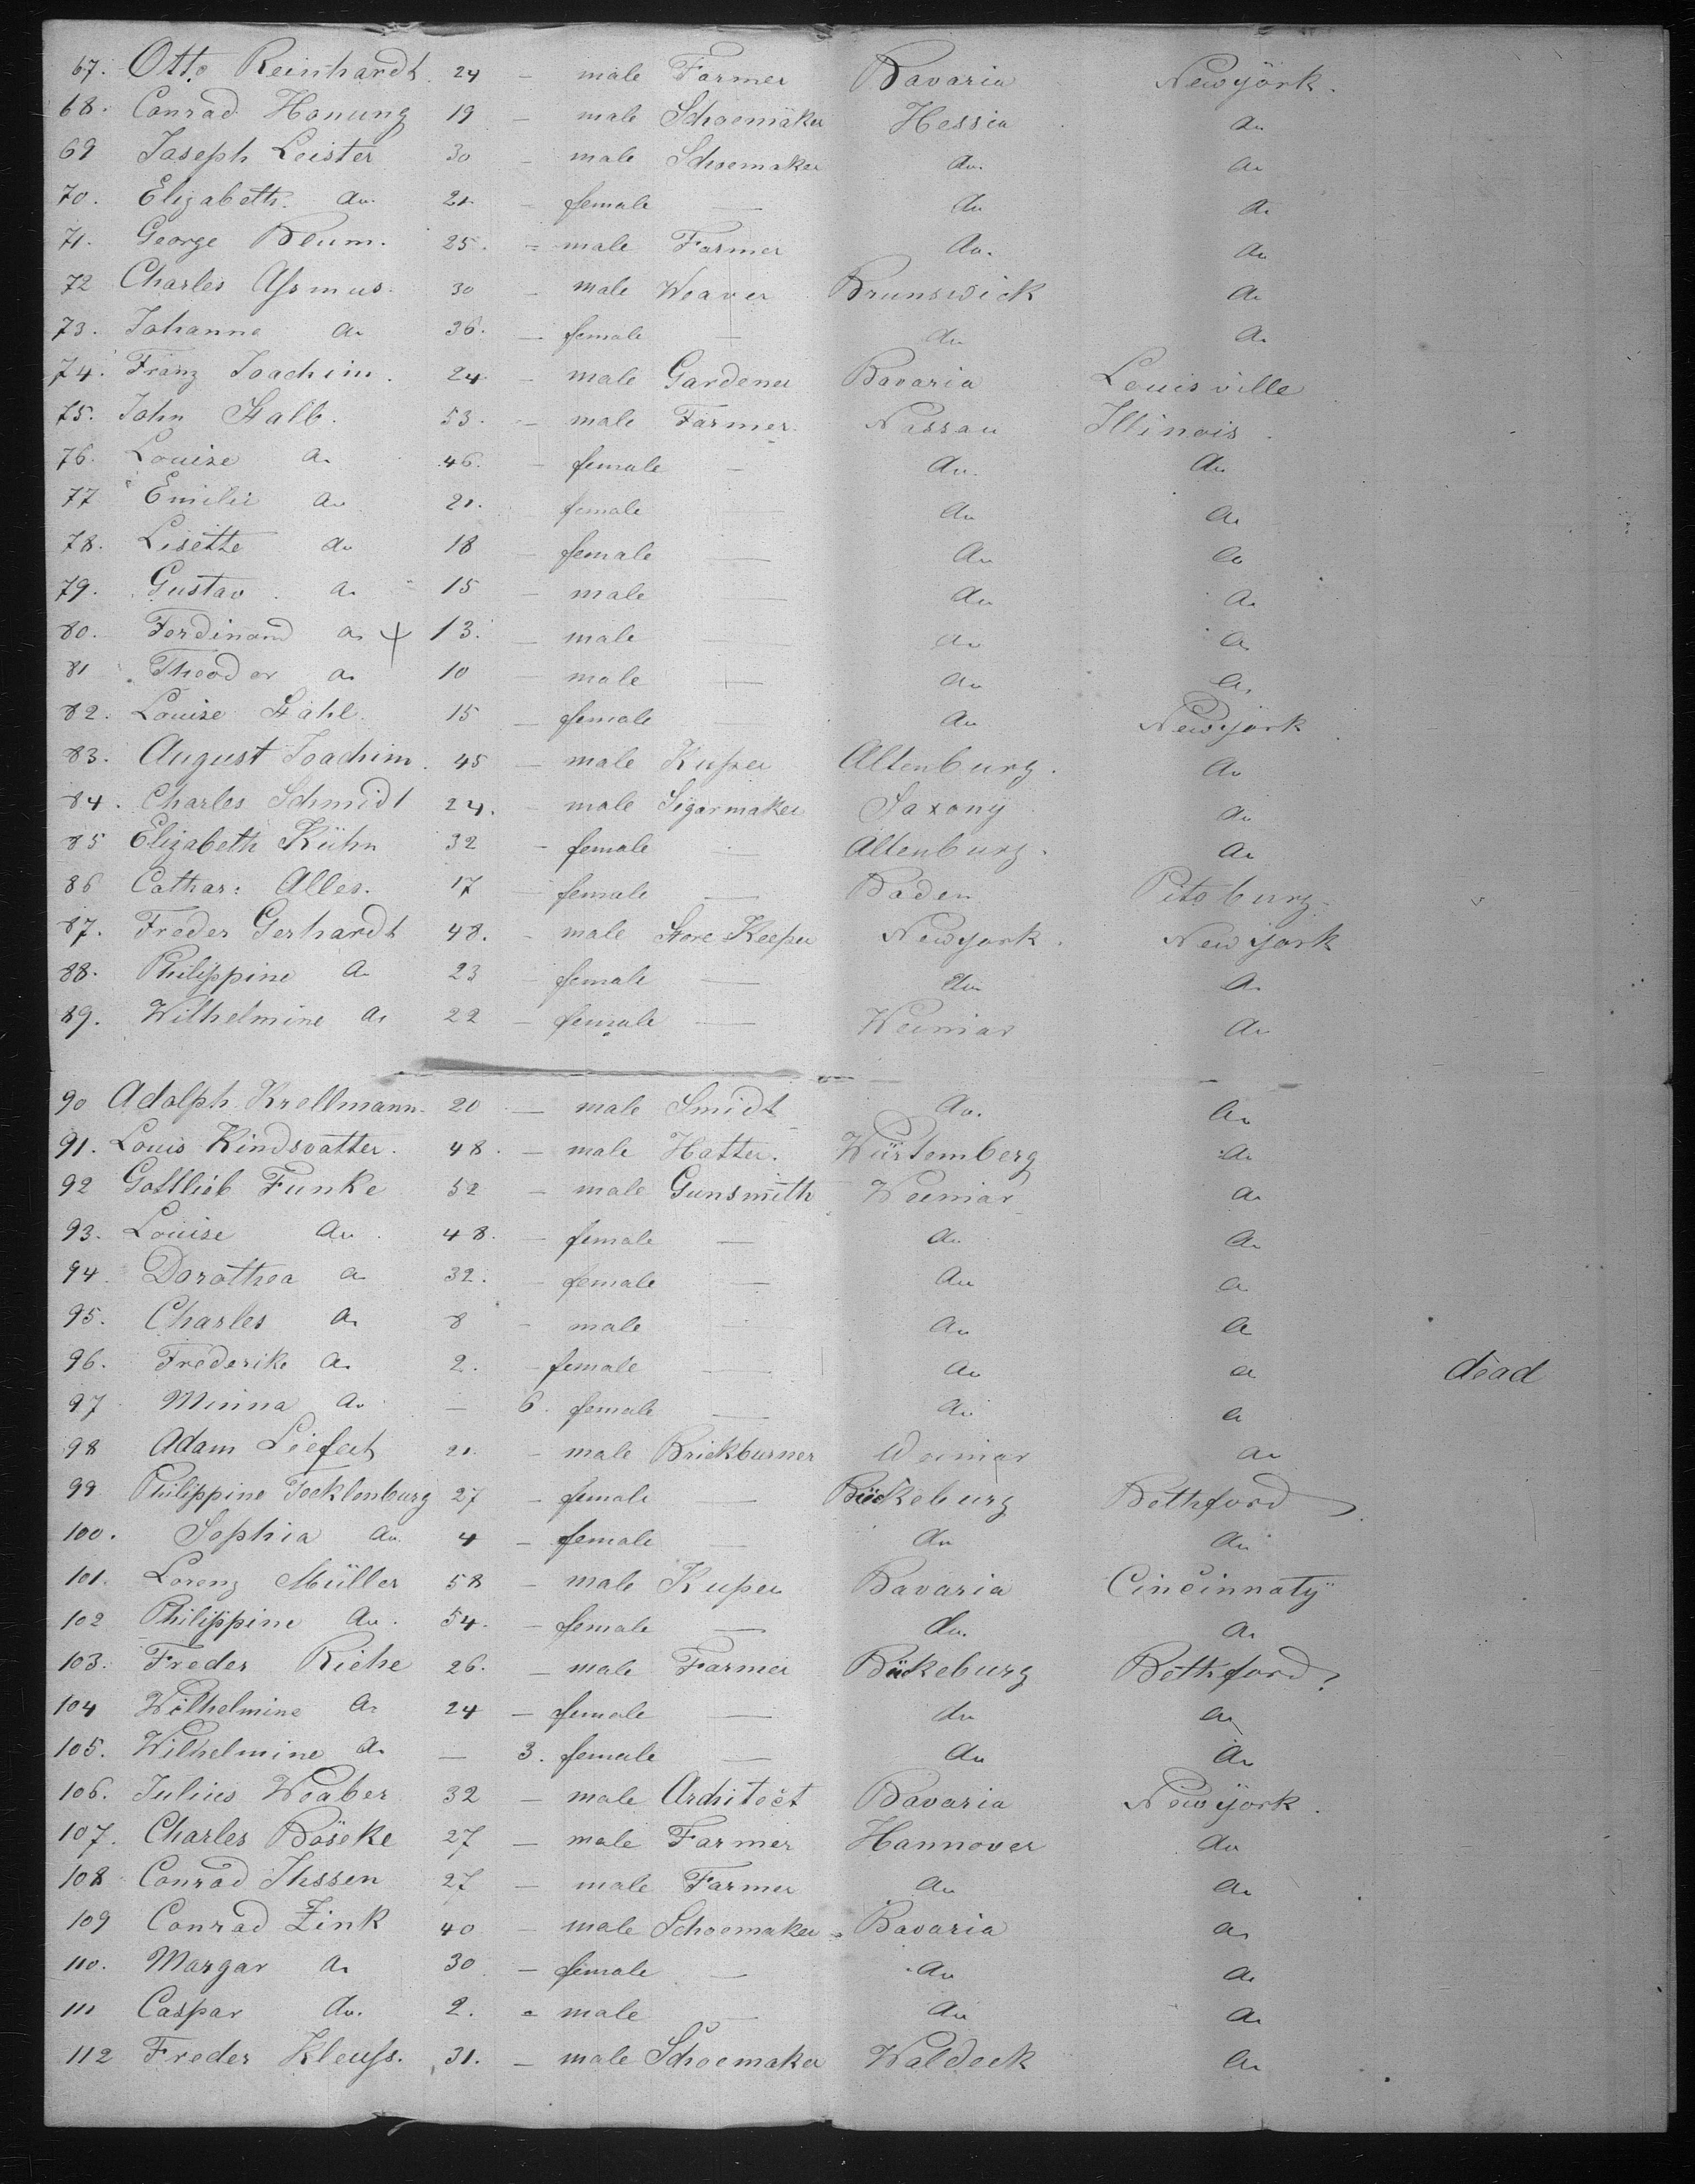 67. Otto Reinhardt. 24 - male Farmer Bavaria Newyörk.
68. Conrad Honung 19 - male Schoemäker Hessia do
69 Joseph Leister 30 - male Schoemaker do. do
70. Elizabeth. do. 21 - female — do do
71. George Bleum. 25. - male Farmer do. do
72 Charles Aſsmus. 30 - male Weaver Brunswick do
73. Johanne do 36. - female — do do
74. Franz Joachim. 24 - male Gardener Bavaria Louisville
75. John Stalb. 53. - male Farmer. Nassau Illinois.
76. Louise do 46. - female - do. do
77 Emilie do 21. - female — do do
78. Lisette do 18 - female — do do
79. Gustav. do 15 - male — do do
80. Ferdinand do 13. - male — do do
81 Theodor do 10 - male — do do.
82. Louise Stahl. 15 - female — do Newÿork.
83. August Joachim. 45 - male Kuper Altenburg. do
84. Charles Schmidt 24. - male Sigarmaker Saxony do
85 Elizabeth Kühn 32 - female — Altenburg. do
86 Cathar: Alles. 17 - female — Baden Pitsburg.
87. Freder Gerhardt 48. - male Store Keeper Newyork. New ÿork
88. Philippine do 23 - female — do do
89. Wilhelmine do 22 - female — Weimar do
90 Adolph Krellmann. 20 - male Smidt do. do
91. Louis Kindsvatter. 48. - male Hatter. Würtemberg do
92 Gottlieb Funke 52 - male Gunsmith Weimar do
93. Louise do. 48. - female — do do
94. Dorothea do 32. - female — do do
95. Charles do 8 - male — do do
96. Frederike do 2. - female — do do dead
97 Minna do — 6. female — do do
98 Adam Liefert 21. - male Brickburner Weimar do
99 Philippine Tecklenburg 27 - female — Bückeburg Bethford
100. Sophia do 4 - female — do do
101. Lorenz Müller 58 - male Kuper Bavaria Cincinnatÿ
102 Philippine do. 54. - female — do. do
103. Freder Riehe 26. - male Farmer Bükeburg Bethford?
104 Wilhelmine do 24 - female — do do
105. Wilhelmine do — 3. female — do do
106. Julius Weaber 32 - male Architect Bavaria Newÿork.
107. Charles Böseke 27 - male Farmer Hannover do
108 Conrad Ihssen 27 - male Farmer do do
109 Conrad Zink 40 - male Schoemaker Bavaria do
110. Margar do 30 - female — do do
111 Caspar do. 2. - male — do do
112 Freder Kleuſs. 31. - male Schoemaker Waldeck do